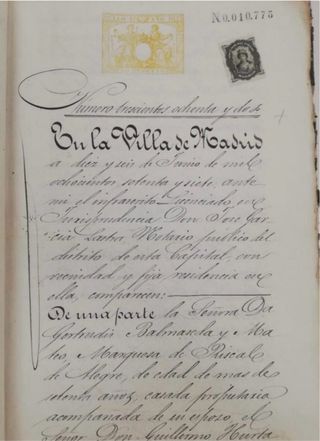 N0.010.775
Numero trescientos ochenta y dos
En la Villa de Madrid
a diez y seis de Junio de mil
ochocientos setenta y siete, ante
mi el infrascrito Licenciado en
Jurisprudencia Don Jose Gar-
cia Lastra Notario publico del
distrito de esta Capital, con
vecindad y fija residencia en
ella, comparecen:
De una parte la Señora Da
Gertrudis Balmaseda y Ma-
teo, Marquesa de Riscal
de Alegre, de edad de mas de
setenta años, casada, propietaria
acompañada de su esposo, el
Señor Don Guillermo Hurta